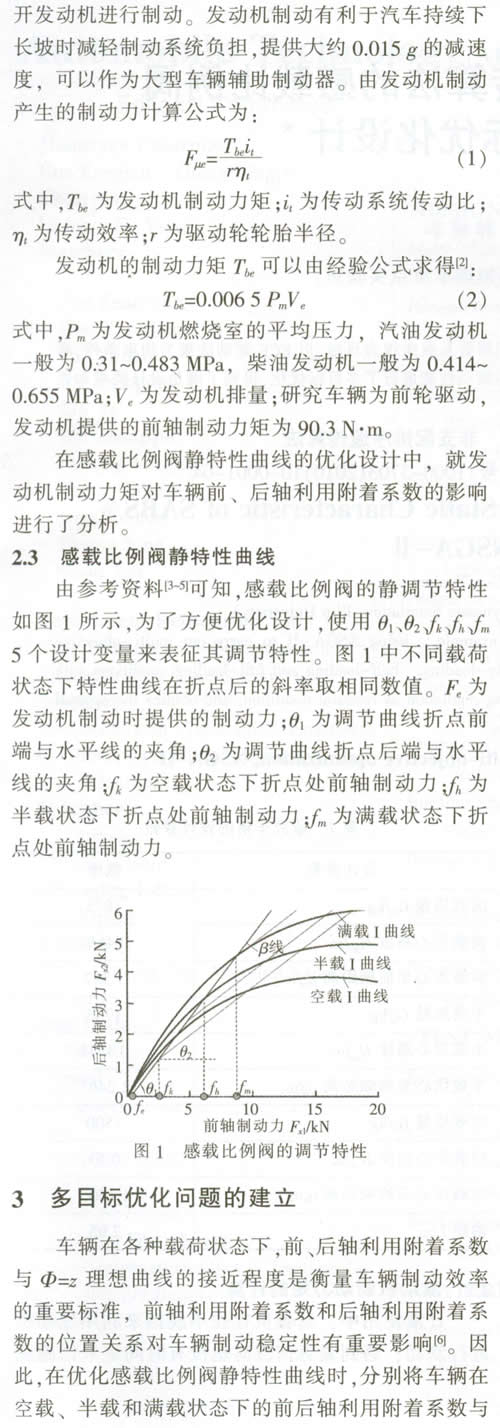 开发动机进行制动。发动机制动有利于汽车持续下
长坡时减轻制动系统负担,提供大约 0.015 g 的减速
度，可以作为大型车辆辅助制动器。由发动机制动
产生的制动力计算公式为：
Fμe=Tbeit/rηt (1)
式中,Tbe 为发动机制动力矩;it 为传动系统传动比;
ηt 为传动效率;r 为驱动轮轮胎半径。
发动机的制动力矩 Tbe 可以由经验公式求得[2]:
Tbe=0.006 5 PmVe (2)
式中,Pm 为发动机燃烧室的平均压力，汽油发动机
一般为 0.31~0.483 MPa，柴油发动机一般为 0.414~
0.655 MPa;Ve 为发动机排量;研究车辆为前轮驱动，
发动机提供的前轴制动力矩为 90.3 N·m。
在感载比例阀静特性曲线的优化设计中，就发
动机制动力矩对车辆前、后轴利用附着系数的影响
进行了分析。
2.3 感载比例阀静特性曲线
由参考资料[3-5]可知,感载比例阀的静调节特性
如图 1 所示,为了方便优化设计,使用 θ1、θ2、fk、fh、fm
5 个设计变量来表征其调节特性。图 1 中不同载荷
状态下特性曲线在折点后的斜率取相同数值。Fe 为
发动机制动时提供的制动力;θ1 为调节曲线折点前
端与水平线的夹角;θ2 为调节曲线折点后端与水平
线的夹角;fk 为空载状态下折点处前轴制动力;fh 为
半载状态下折点处前轴制动力;fm 为满载状态下折
点处前轴制动力。
6
5
4
3
2
1
0
后轴制动力 Fx2/kN
β线
满载 I 曲线
半载 I 曲线
空载 I 曲线
θ2
θ1
fk
fh
fm
0
fe
5
10
15
20
前轴制动力 Fx1/kN
图 1 感载比例阀的调节特性
3 多目标优化问题的建立
车辆在各种载荷状态下,前、后轴利用附着系数
与 Φ=z 理想曲线的接近程度是衡量车辆制动效率
的重要标准，前轴利用附着系数和后轴利用附着系
数的位置关系对车辆制动稳定性有重要影响[6]。因
此,在优化感载比例阀静特性曲线时,分别将车辆在
空载、半载和满载状态下的前后轴利用附着系数与